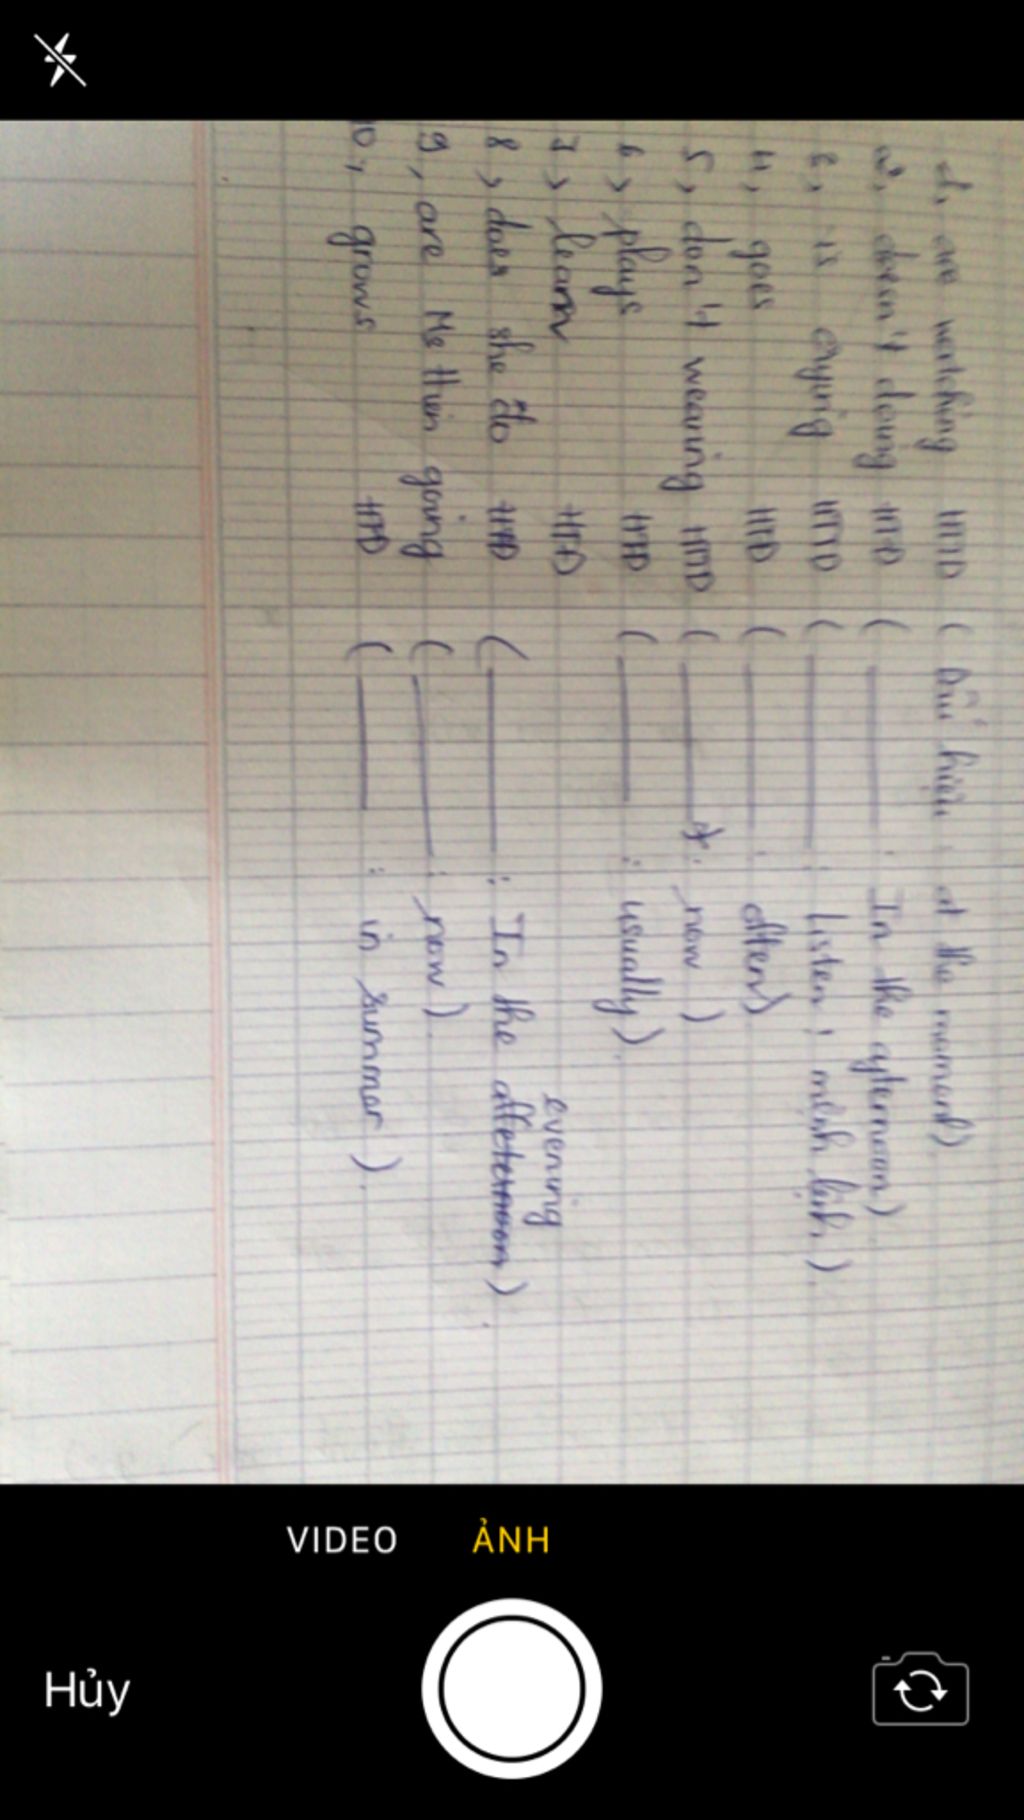 1, are watching HTTD ( Dấu hiệu : at the moment)
2, doesn't doing HTD ( : In the afternoon)
3, is crying HTTD ( : Listen! mệnh lệnh )
4, goes HTD ( : often)
5, don't wearing HTTD ( : now )
6, plays HTD ( : usually ).
7, learn HTD
evening
8, does she do HTD ( : In the affeternoon ).
9, are Ms going ( : now ).
10, grows HTD ( : in summer ).
VIDEO ẢNH
Hủy